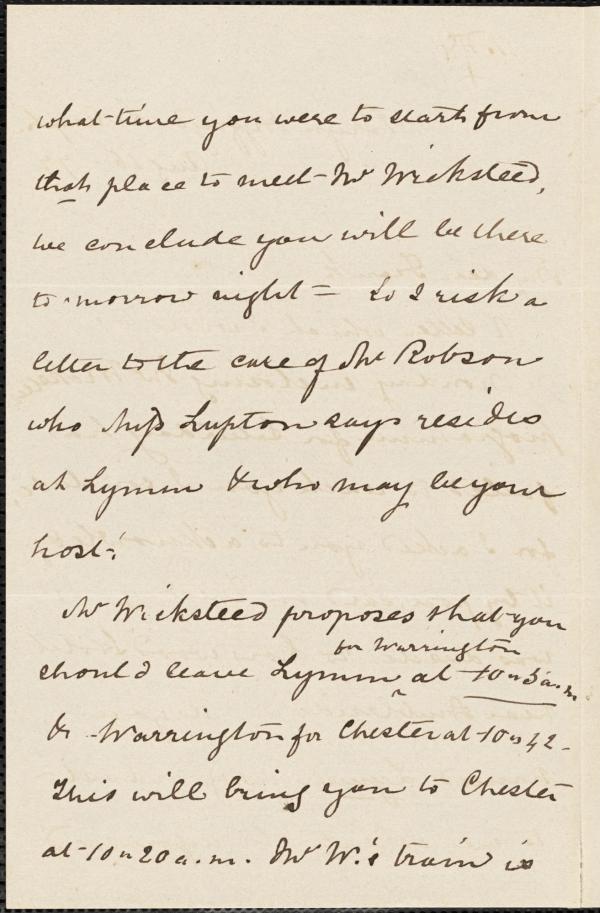 what time you were to start from
that place to meet Mr Wicksteed,
we conclude you will be there
to-morrow night = So I risk a
letter to the care of Mr Robson
who Miss Lupton says resides
at Lymm & who may be your
host.
Mr Wicksteed proposes that you
for Warrington
should leave Lymm ^ at 10 " 5 a.m.
& Warrington for Chester at 10 " 42 -
This will bring you to Chester
at 10 " 20 a.m. Mr W.'s train is